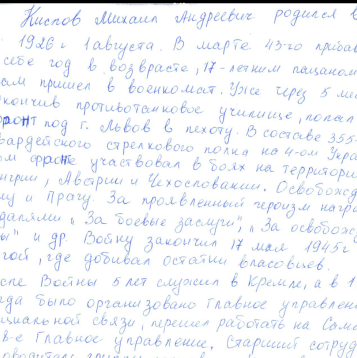 Кислов Михаил Андреевич родился в
1926 г 1 августа. В марте 43-го прибав
себе год в возврасте, 17-летним пацаном
сам пришел в военкомат. Уже через 5 ме
окончив противотанковое училище, попал
фронт под г. Львов в пехоту. В составе 355-
вардейского стрелкового полка на 4-ом Укра
ом фронте участвовал в боях на территори
енгрии, Австрии и Чехословакии. Освобожд
ну и Прагу. За проявленный героизм нагр
далями „За боевые заслуги", „За освобож
ы" и др. Войну закончил 17 мая 1945 г
гой, где добивал остатки власовцев.
сле Войны 5 лет служил в Кремле, а в 1
гда было организовано Главное управлен
циальной связи, перешел работать на Само
в-е Главное управление. Старший сотруд